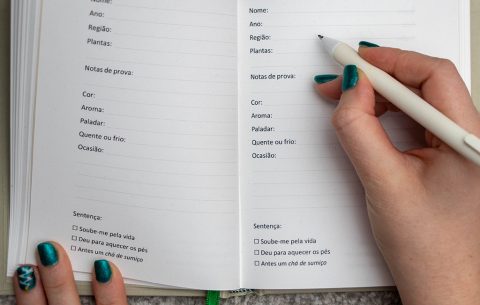 Nome:
Ano:
Região:
Plantas:
Notas de prova:
Cor:
Aroma:
Paladar:
Quente ou frio:
Ocasião:
Sentença:
☐ Soube-me pela vida
☐ Deu para aquecer os pés
☐ Antes um chá de sumiço
Nome:
Ano:
Região:
Plantas:
Notas de prova:
Cor:
Aroma:
Paladar:
Quente ou frio:
Ocasião:
Sentença:
☐ Soube-me pela vida
☐ Deu para aquecer os pés
☐ Antes um chá de sumiço